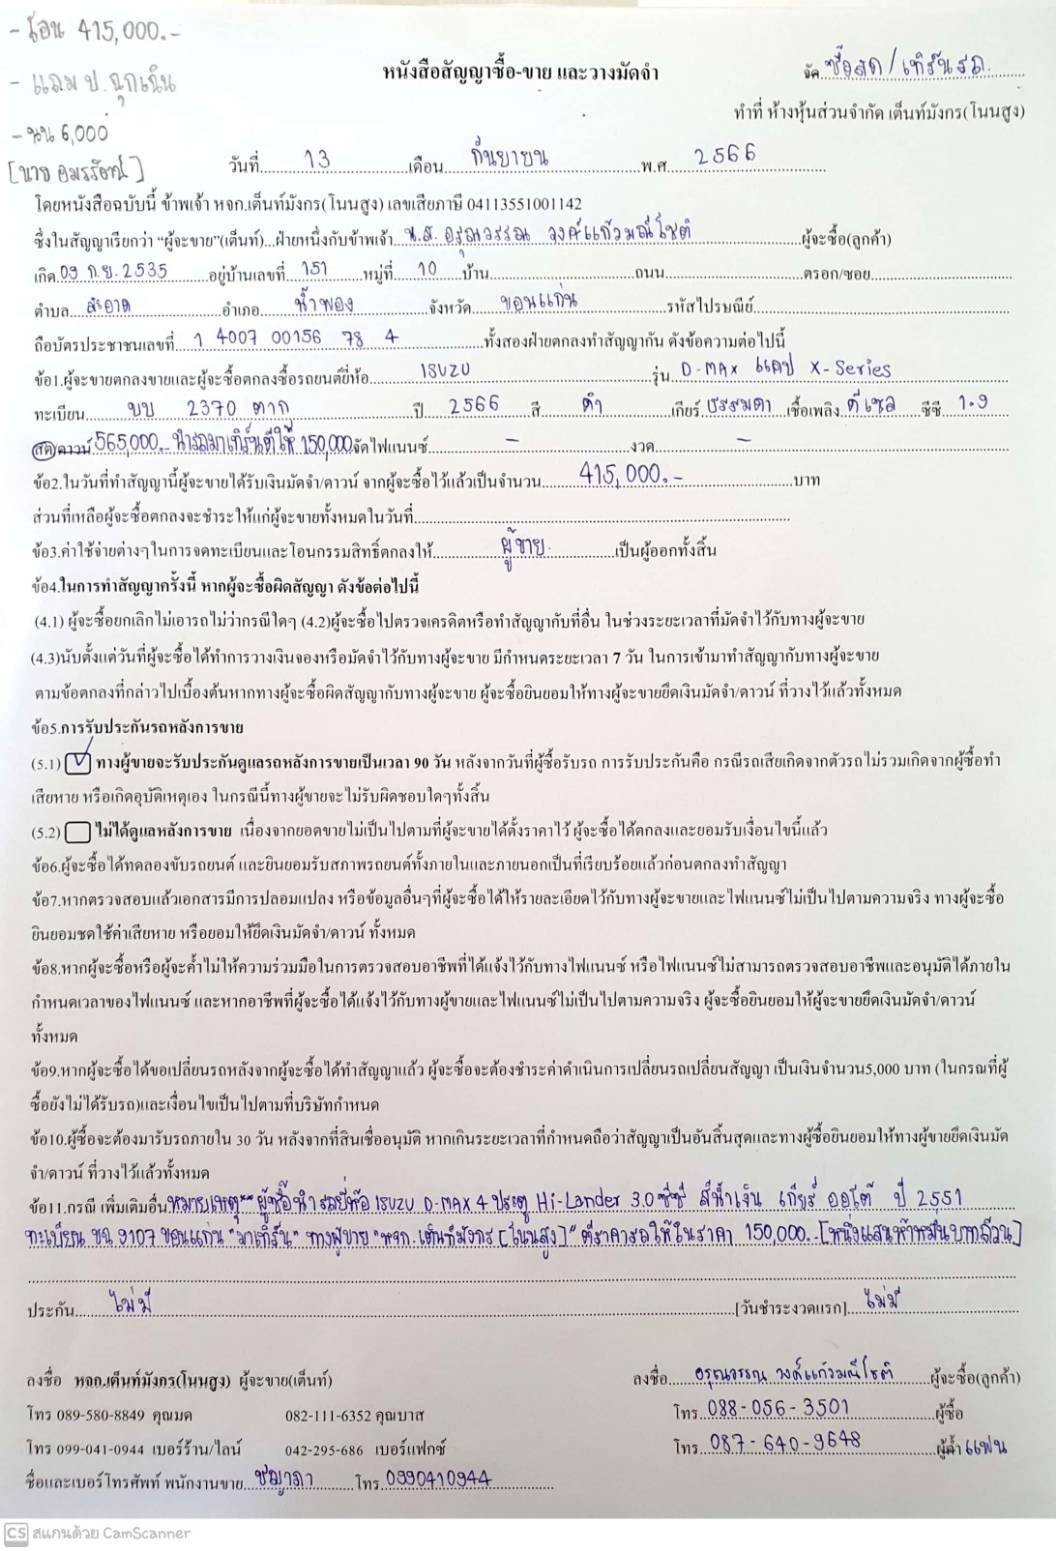 - โอน 415,000.-
- แถม ป. ฉุกเฉิน
- นน 6,000
[นาย อมรรัตน์]
หนังสือสัญญาซื้อ-ขาย และวางมัดจำ
จัด ซื้อสด / เทิร์นรถ
ทำที่ ห้างหุ้นส่วนจำกัด เต็นท์มังกร(โนนสูง)
วันที่ 13 เดือน กันยายน พ.ศ. 2566
โดยหนังสือฉบับนี้ ข้าพเจ้า หจก.เต็นท์มังกร(โนนสูง) เลขเสียภาษี 04113551001142
ซึ่งในสัญญาเรียกว่า “ผู้จะขาย”(เต็นท์)...ฝ่ายหนึ่งกับข้าพเจ้า น.ส. อรุณวรรณ วงศ์แก้วมณีโชติ ผู้จะซื้อ(ลูกค้า)
เกิด 09 ก.ย. 2535 อยู่บ้านเลขที่ 151 หมู่ที่ 10 บ้าน ถนน ตรอก/ซอย
ตำบล สะอาด อำเภอ น้ำพอง จังหวัด ขอนแก่น รหัสไปรษณีย์
ถือบัตรประชาชนเลขที่ 1 4007 00156 78 4 ทั้งสองฝ่ายตกลงทำสัญญากัน ดังข้อความต่อไปนี้
ข้อ1.ผู้จะขายตกลงขายและผู้จะซื้อตกลงซื้อรถยนต์ยี่ห้อ ISUZU รุ่น D-MAX แคป X-Series
ทะเบียน บบ 2370 ตาก ปี 2566 สี ดำ เกียร์ ธรรมดา เชื้อเพลิง ดีเซล ซีซี 1.9
สด/ดาวน์ 565,000.- นำรถมาเทิร์นตีให้ 150,000 จัดไฟแนนซ์ - งวด -
ข้อ2.ในวันที่ทำสัญญานี้ผู้จะขายได้รับเงินมัดจำ/ดาวน์ จากผู้จะซื้อไว้แล้วเป็นจำนวน 415,000.- บาท
ส่วนที่เหลือผู้จะซื้อตกลงจะชำระให้แก่ผู้จะขายทั้งหมดในวันที่
ข้อ3.ค่าใช้จ่ายต่างๆในการจดทะเบียนและโอนกรรมสิทธิ์ตกลงให้ ผู้ขาย เป็นผู้ออกทั้งสิ้น
ข้อ4.ในการทำสัญญาครั้งนี้ หากผู้จะซื้อผิดสัญญา ดังข้อต่อไปนี้
(4.1) ผู้จะซื้อยกเลิกไม่เอารถไม่ว่ากรณีใดๆ (4.2)ผู้จะซื้อไปตรวจเครดิตหรือทำสัญญากับที่อื่น ในช่วงระยะเวลาที่มัดจำไว้กับทางผู้จะขาย
(4.3)นับตั้งแต่วันที่ผู้จะซื้อได้ทำการวางเงินจองหรือมัดจำไว้กับทางผู้จะขาย มีกำหนดระยะเวลา 7 วัน ในการเข้ามาทำสัญญากับทางผู้จะขาย
ตามข้อตกลงที่กล่าวไปเบื้องต้นหากทางผู้จะซื้อผิดสัญญากับทางผู้จะขาย ผู้จะซื้อยินยอมให้ทางผู้จะขายยึดเงินมัดจำ/ดาวน์ ที่วางไว้แล้วทั้งหมด
ข้อ5.การรับประกันรถหลังการขาย
(5.1) ทางผู้ขายจะรับประกันดูแลรถหลังการขายเป็นเวลา 90 วัน หลังจากวันที่ผู้ซื้อรับรถ การรับประกันคือ กรณีรถเสียเกิดจากตัวรถไม่รวมเกิดจากผู้ซื้อทำ
เสียหาย หรือเกิดอุบัติเหตุเอง ในกรณีนี้ทางผู้ขายจะไม่รับผิดชอบใดๆทั้งสิ้น
(5.2) ไม่ได้ดูแลหลังการขาย เนื่องจากยอดขายไม่เป็นไปตามที่ผู้จะขายได้ตั้งราคาไว้ ผู้จะซื้อได้ตกลงและยอมรับเงื่อนไขนี้แล้ว
ข้อ6.ผู้จะซื้อได้ทดลองขับรถยนต์ และยินยอมรับสภาพรถยนต์ทั้งภายในและภายนอกเป็นที่เรียบร้อยแล้วก่อนตกลงทำสัญญา
ข้อ7.หากตรวจสอบแล้วเอกสารมีการปลอมแปลง หรือข้อมูลอื่นๆที่ผู้จะซื้อได้ให้รายละเอียดไว้กับทางผู้จะขายและไฟแนนซ์ไม่เป็นไปตามความจริง ทางผู้จะซื้อ
ยินยอมชดใช้ค่าเสียหาย หรือยอมให้ยึดเงินมัดจำ/ดาวน์ ทั้งหมด
ข้อ8.หากผู้จะซื้อหรือผู้จะค้ำไม่ให้ความร่วมมือในการตรวจสอบอาชีพที่ได้แจ้งไว้กับทางไฟแนนซ์ หรือไฟแนนซ์ไม่สามารถตรวจสอบอาชีพและอนุมัติได้ภายใน
กำหนดเวลาของไฟแนนซ์ และหากอาชีพที่ผู้จะซื้อได้แจ้งไว้กับทางผู้ขายและไฟแนนซ์ไม่เป็นไปตามความจริง ผู้จะซื้อยินยอมให้ผู้จะขายยึดเงินมัดจำ/ดาวน์
ทั้งหมด
ข้อ9.หากผู้จะซื้อได้ขอเปลี่ยนรถหลังจากผู้จะซื้อได้ทำสัญญาแล้ว ผู้จะซื้อจะต้องชำระค่าดำเนินการเปลี่ยนรถเปลี่ยนสัญญา เป็นเงินจำนวน5,000 บาท (ในกรณที่ผู้
ซื้อยังไม่ได้รับรถ)และเงื่อนไขเป็นไปตามที่บริษัทกำหนด
ข้อ10.ผู้ซื้อจะต้องมารับรถภายใน 30 วัน หลังจากที่สินเชื่ออนุมัติ หากเกินระยะเวลาที่กำหนดถือว่าสัญญาเป็นอันสิ้นสุดและทางผู้ซื้อยินยอมให้ทางผู้ขายยึดเงินมัด
จำ/ดาวน์ ที่วางไว้แล้วทั้งหมด
ข้อ11.กรณี เพิ่มเติมอื่น หมายเหตุ** ผู้ซื้อนำรถยี่ห้อ ISUZU D-MAX 4 ประตู Hi-Lander 3.0 ซีซี สีน้ำเงิน เกียร์ ออโต้ ปี 2551
ทะเบียน ขฉ 9107 ขอนแก่น "มาเทิร์น" ทางผู้ขาย "หจก. เต็นท์มังกร [โนนสูง]" ตีราคารถให้ในราคา 150,000.- [หนึ่งแสนห้าหมื่นบาทถ้วน]
ประกัน ไม่มี [วันชำระงวดแรก] ไม่มี
ลงชื่อ หจก.เต็นท์มังกร(โนนสูง) ผู้จะขาย(เต็นท์) ลงชื่อ อรุณวรรณ วงศ์แก้วมณีโชติ ผู้จะซื้อ(ลูกค้า)
โทร 089-580-8849 คุณมด 082-111-6352 คุณบาส โทร 088-056-3501 ผู้ซื้อ
โทร 099-041-0944 เบอร์ร้าน/ไลน์ 042-295-686 เบอร์แฟกซ์ โทร 087-640-9648 ผู้ค้ำ แฟน
ชื่อและเบอร์โทรศัพท์ พนักงานขาย ชญาภา โทร 0990410944
CS สแกนด้วย CamScanner